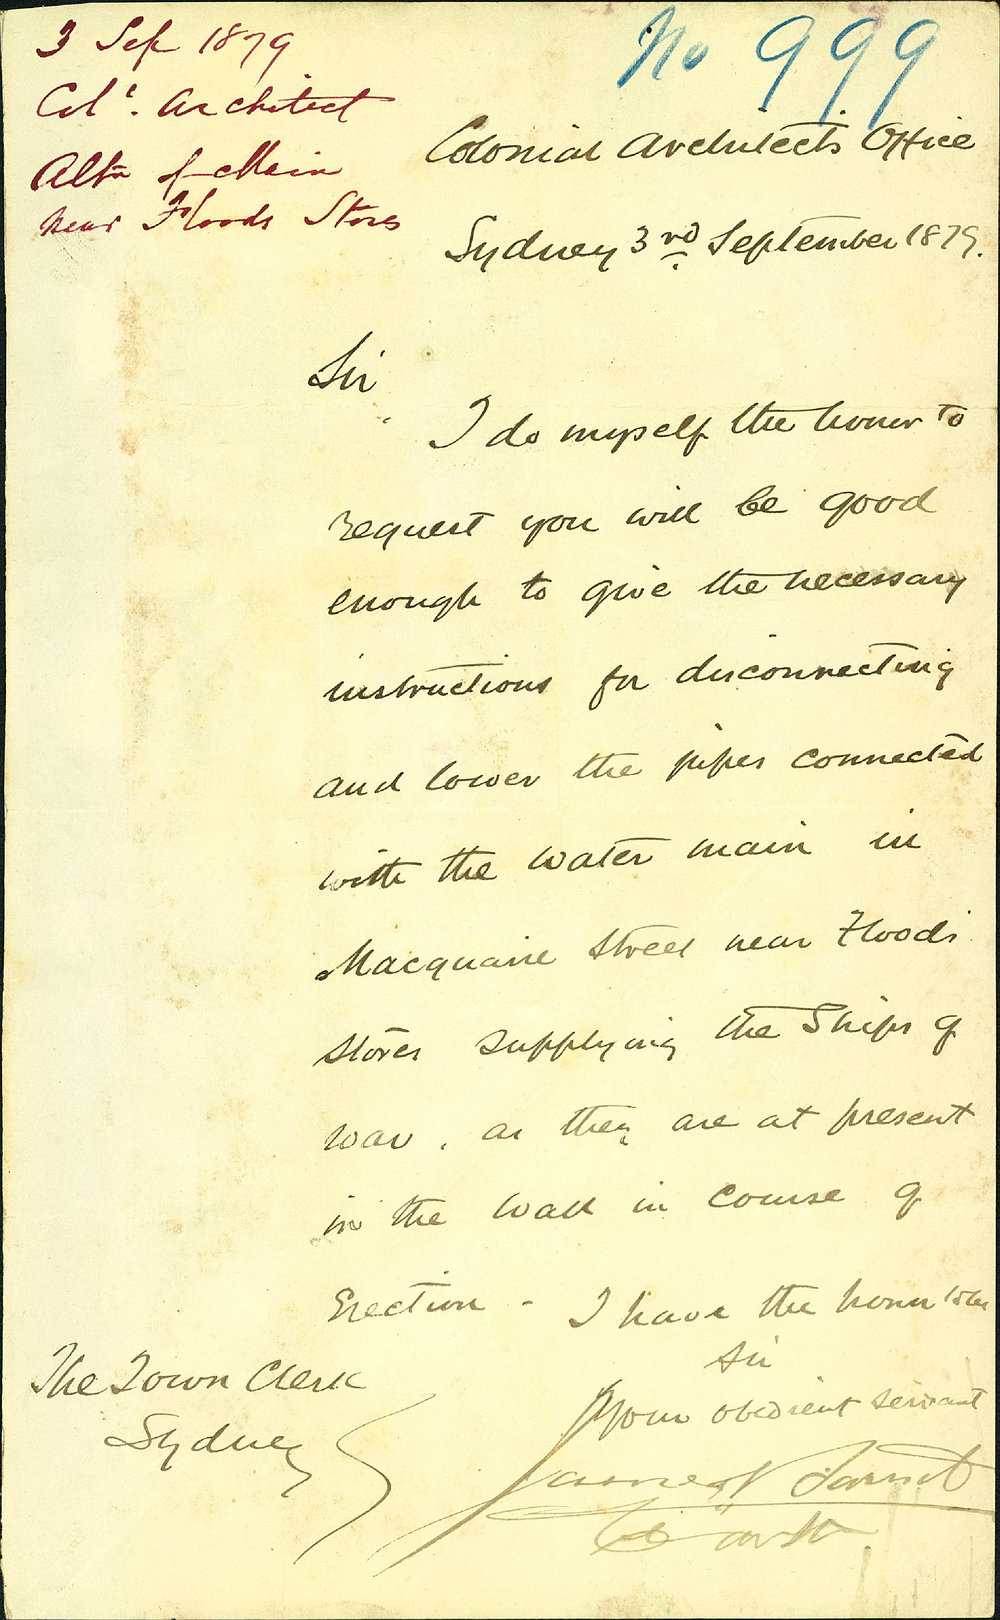 3 Sep 1879
Col^t. Architect
Altn of Main
near Floods Stores
No 999
Colonial Architects Office
Sydney 3rd September 1879.
Sir
I do myself the honor to
request you will be good
enough to give the necessary
instructions for disconnecting
and lower the pipes connected
with the water main in
Macquarie Street near Floods
stores supplying the Ships of
war, as they are at present
in the wall in course of
Erection - I have the honor to be
Sir
Your obedient servant
James Barnet
Col Archt
The Town Clerk
Sydney